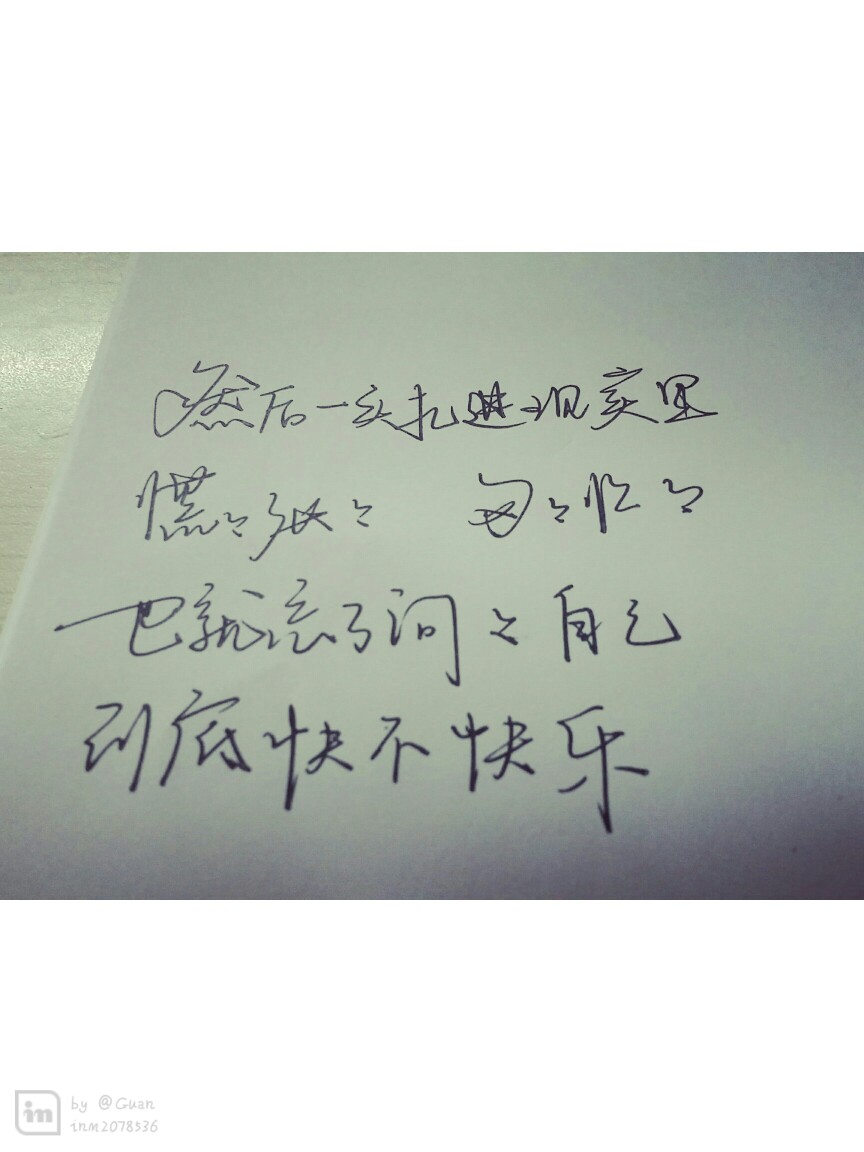 然后一头扎进现实里
慌慌张张 匆匆忙忙
也就忘了问问自己
到底快不快乐
in by @Guan
inm2078536